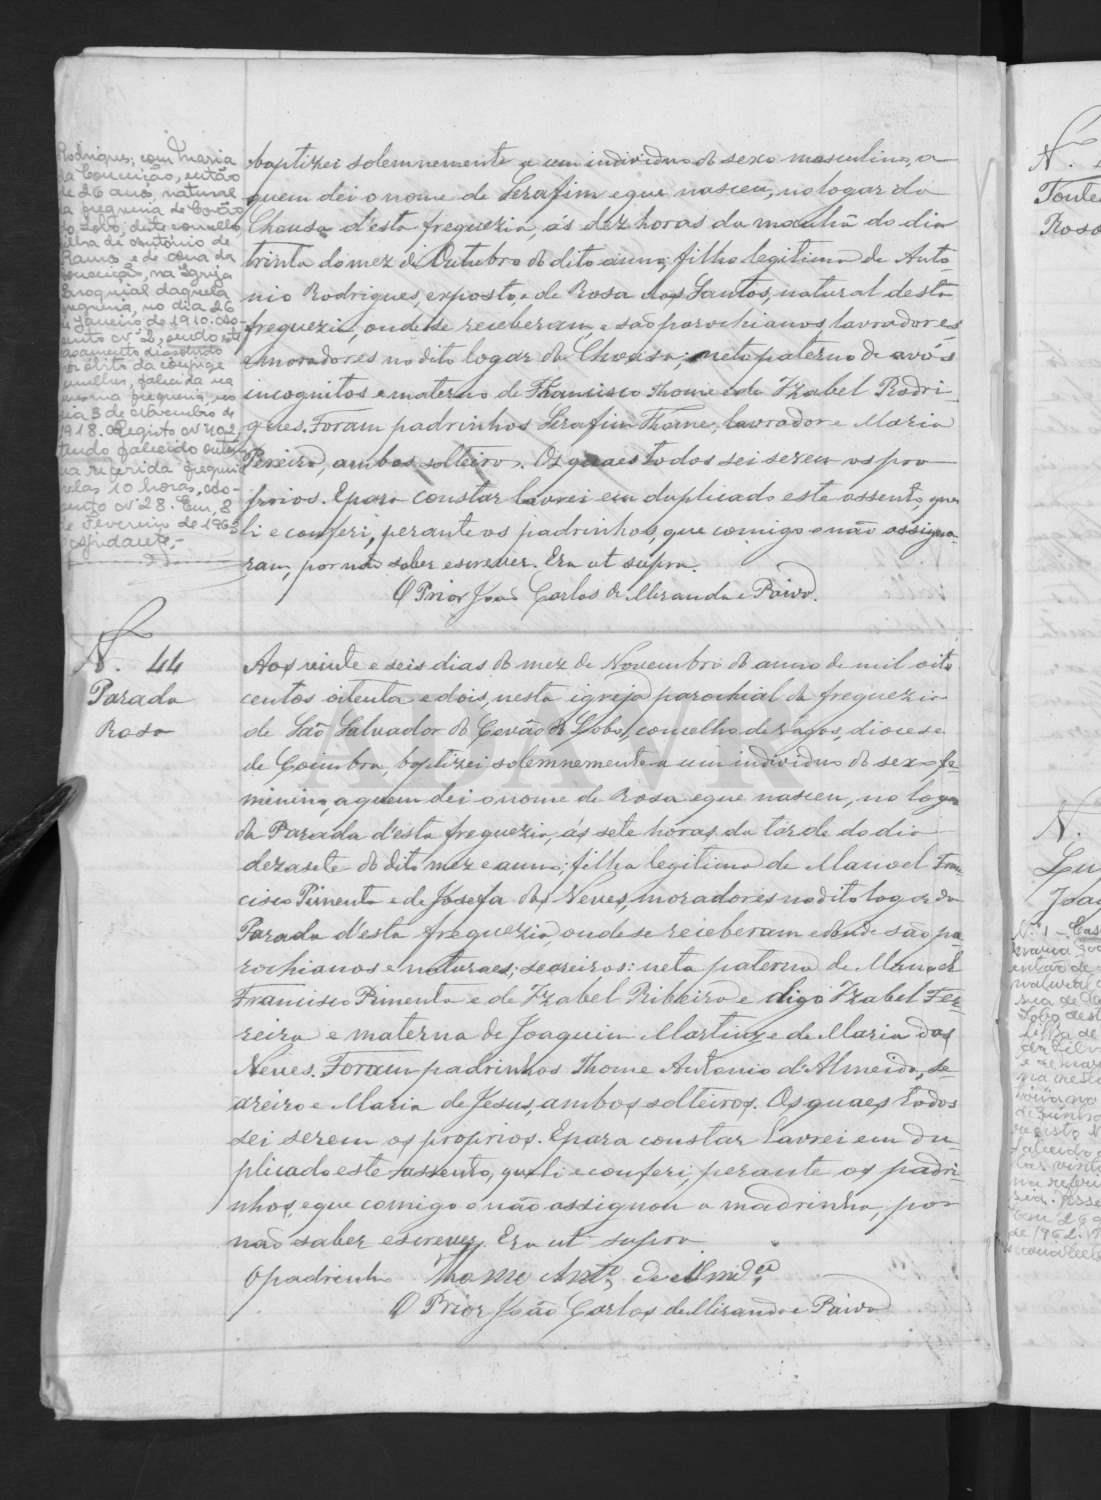 Rodrigues, com Maria
da Conceição, então
de 26 anos, natural
da freguesia de Covão
do Lobo, deste concelho,
filha de António de
Ramos e de
Conceição, na Igreja
Paroquial daquela
freguesia, no dia 26
de Janeiro de 1910.
Nº 2, sendo este
casamento dissolvido
por óbito da conjuge
mulher, falecida na
mesma freguesia, no
dia 3 de Novembro de
1918. Registo Nº 402
tendo falecido
na referida freguesia
pelas 10 horas,
Nº 28. Em, 8
de Fevereiro de 1963
O Ajudante,-
baptizei solemnemente a um individuo do sexo masculino, a
quem dei o nome de Serafim e que nasceu, no logar da
Chousa d'esta freguezia, ás dez horas da manhã do dia
trinta do mez de Outubro do dito anno, filho legitimo de Anto-
nio Rodrigues, exposto, e de Rosa dos Santos, natural desta
freguezia, onde se receberam, e são parochianos, lavradores
e moradores no dito logar da Chousa; neto paterno de avós
incognitos e materno de Francisco Thome e de Izabel Rodri-
gues. Foram padrinhos Serafim Thome, lavrador e Maria
Pereira, ambos solteiros. Os quaes todos sei serem os pro
prios. E para constar lavrei em duplicado este assento, que
li e conferi, perante os padrinhos, que comigo o não assigna-
ram, por não saber escrever. Era ut supra.
O Prior João Carlos de Miranda e Paiva.
N. 44
Parada
Rosa
Aos vinte e seis dias do mez de Novembro do anno de mil oito
centos oitenta e dois, nesta igreja parochial da freguezia
de São Salvador do Covão do Lobo, concelho de Vagos, diocese
de Coimbra, baptizei solemnemente a um individuo do sexo fe-
minino, a quem dei o nome de Rosa e que nasceu, no logar
da Parada d'esta freguezia, ás sete horas da tarde do dia
dezasete do dito mez e anno; filha legitima de Manoel Fran-
cisco Pimenta e de Josefa das Neves, moradores no dito logar da
Parada d'esta freguezia, onde se receberam e donde são pa-
rochianos e naturaes; seareiros: neta paterna de Manoel
Francisco Pimenta e de Izabel Ribeiro e digo Izabel Fer-
reira e materna de Joaquim Martins e de Maria das
Neves. Foram padrinhos Thome Antonio d'Almeida, se-
areiro e Maria de Jesus, ambos solteiros. Os quaes todos
sei serem os proprios. E para constar lavrei em du-
plicado este assento, que li e conferi, perante os padri-
nhos, e que comigo o não assignou a madrinha, por
não saber escrever. Era ut supra
O padrinho Thome Antº de Almdª
O Prior João Carlos de Miranda e Paiva
ADAVR
N.
Fonte
Rosa
N.
Joaq